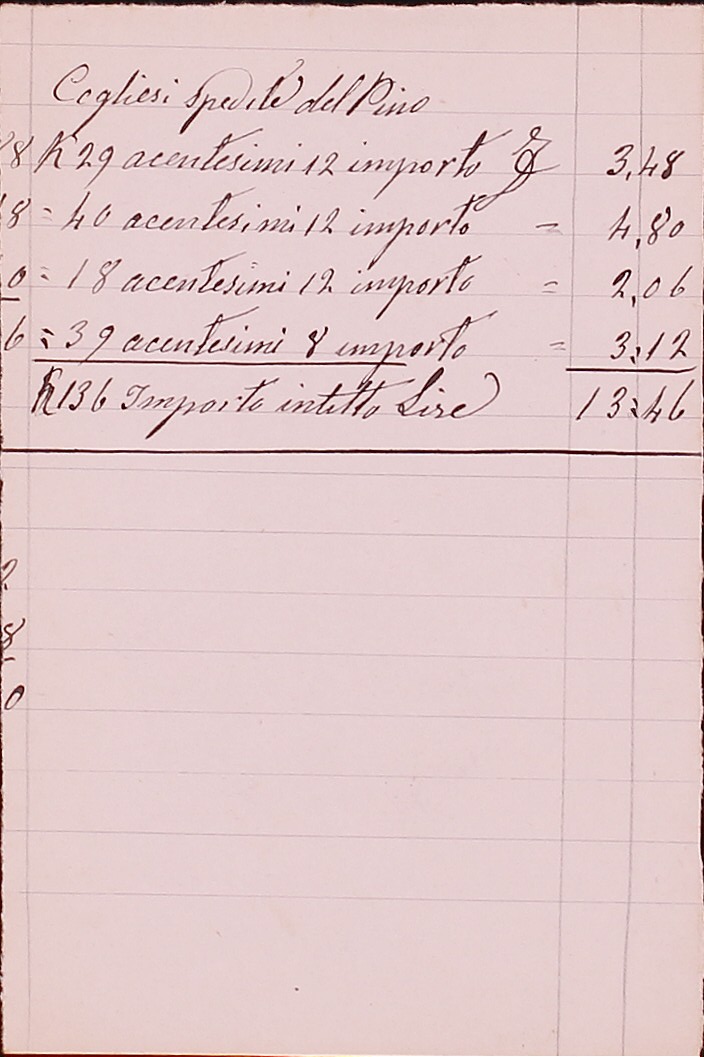 Cogliesi spedite del Pino
8 K 29 acentesimi 12 importo £ 3,48
8 = 40 acentesimi 12 importo = 4,80
0 = 18 acentesimi 12 importo = 2,06
6 = 39 acentesimi 8 importo = 3,12
K 136 Importo intutto Lire 13,46
2
8
0